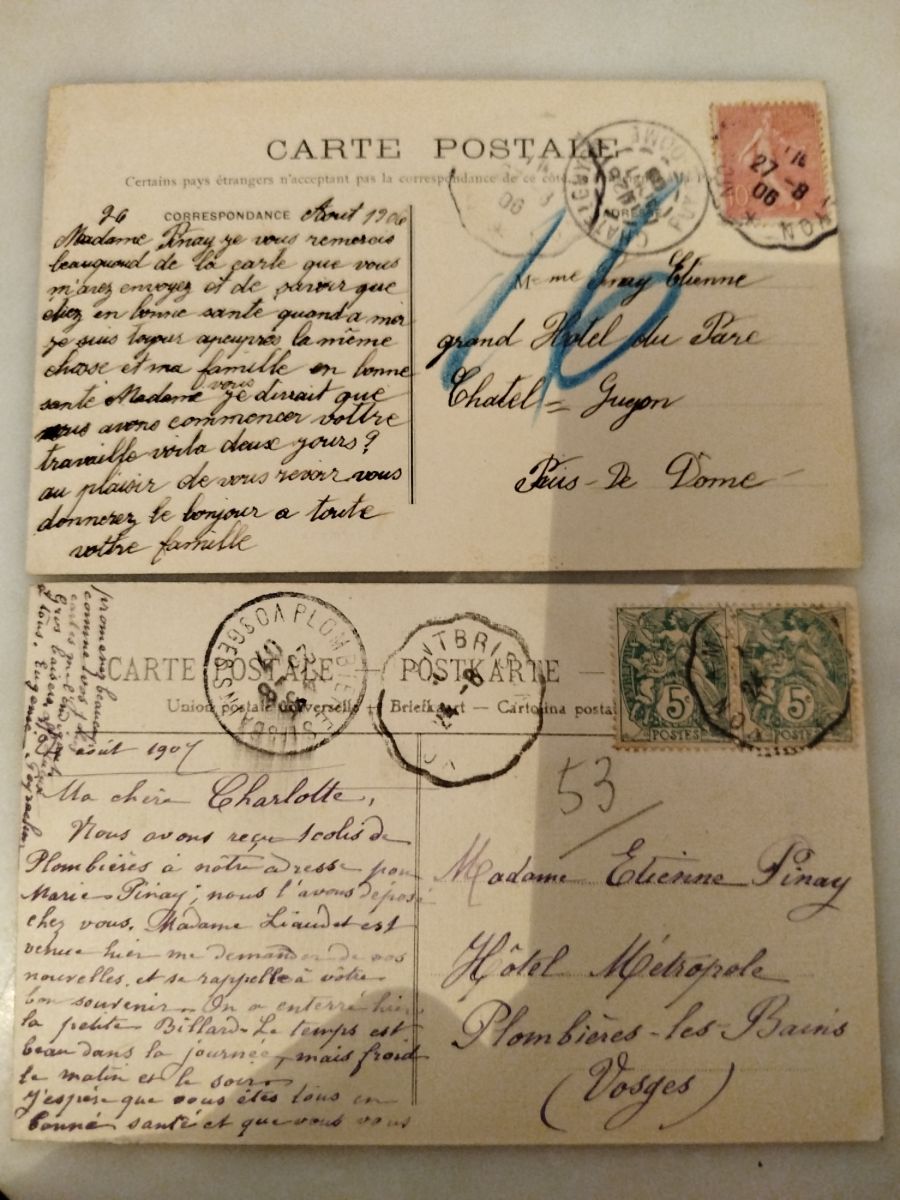 CARTE POSTALE
Certains pays étrangers n'acceptant pas la correspondance de ce côté
CORRESPONDANCE
ADRESSE
26 Aout 1906
Madame Pinay je vous remerois
beauquoud de la carte que vous
m'avez envoyez et de savoir que
etiez en bonne santé quand a moi
je suis toyour apeuprés la même
chose et ma famille en bonne
santé Madame je vous dirrait que
nous avons commencer vottre
travaille voila deux yours?
au plaisir de vous revoir vous
donnerez le bonjour a toute
vottre famille
Meme Pinay Etienne
grand Hotel du Parc
Chatel = Guyon
Puis-De Dôme
16
CHATELGUYON
PUY-DE-DOME
27 -8
06
CARTE POSTALE — POSTKARTE —
Union postale universelle + Briefkaart — Cartolina postal
août 1907
Ma chère Charlotte,
Nous avons reçu 1 colis de
Plombières à nôtre adresse pour
Marie Pinay; nous l'avons déposé
chez vous. Madame Liaudet est
venue hier me demander de vos
nouvelles, et se rappelle à vôtre
bon souvenir. On a enterré hier
la petite Billard. Le temps est
beau dans la journée, mais froid
le matin et le soir.
J'espère que vous êtes tous en
bonne santé et que vous vous
promenez beaucoup
Gros baisers
à tous, Eugénie
53
Madame Etienne Pinay
Hôtel Métropole
Plombières-les-Bains
(Vosges)
PLOMBIERES LES BAINS VOSGES
NTBRI
24 -8
5c
POSTES
5c
POSTES